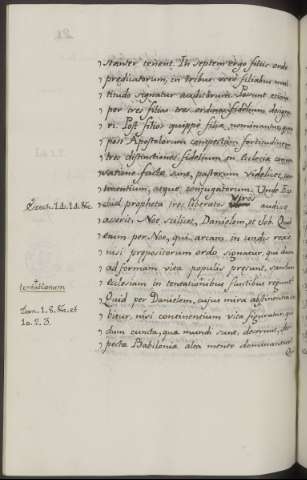 stanter tenent. In septem ergo filiis ordo
prædicatorum, in tribus verò filiabus mul-
titudo signatur auditorum. Possunt etiam
per tres filias tres ordines fidelium designa-
ri. Post filios quippè filiæ nominantur, quia
post Apostolorum conspectam fortitudinem
tres distinctiones fidelium in Ecclesia
factæ sunt, pastorum videlicet, con-
tinentium, atque conjugatorum. Unde
propheta tres liberatos viros
Ezech. 14. 14. &c.
asserit, Noë, scilicet, Danielem, et Job. Quis
enim per Noë, qui arcam in undis rexit
nisi præpositorum ordo signatur, qui dum
ad formam vitæ populis præsunt, sanctam
ecclesiam in tentationum fluctibus regunt?
tentationem
Quid per Danielem, cujus mira abstinentia
Dan. 1. 8. &c. et
bitur, nisi continentium vita figuratur, qui
10. 2. 3.
dum cuncta, quæ mundi sunt, deserunt, des-
pectæ Babiloniæ alta mente dominantur?